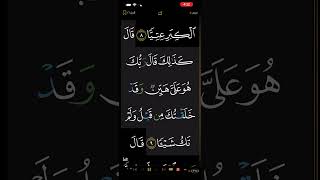 ٱلۡكِبَرِ عِتِيّٗا ٨ قَالَ
كَذَٰلِكَ قَالَ رَبُّكَ
هُوَ عَلَيَّ هَيِّنٞ وَقَدۡ
خَلَقۡتُكَ مِن قَبۡلُ وَلَمۡ
تَكُ شَيۡـٔٗا ٩ قَالَ